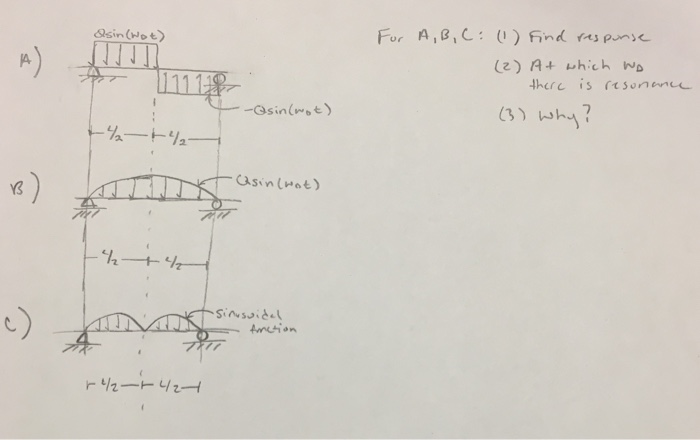 A)
Qsin(ω₀t)
-Qsin(ω₀t)
L/2 L/2
B)
Qsin(ω₀t)
L/2 L/2
C)
Sinusoidal
function
L/2 L/2
For A, B, C: (1) Find response
(2) At which ω₀
there is resonance
(3) Why?